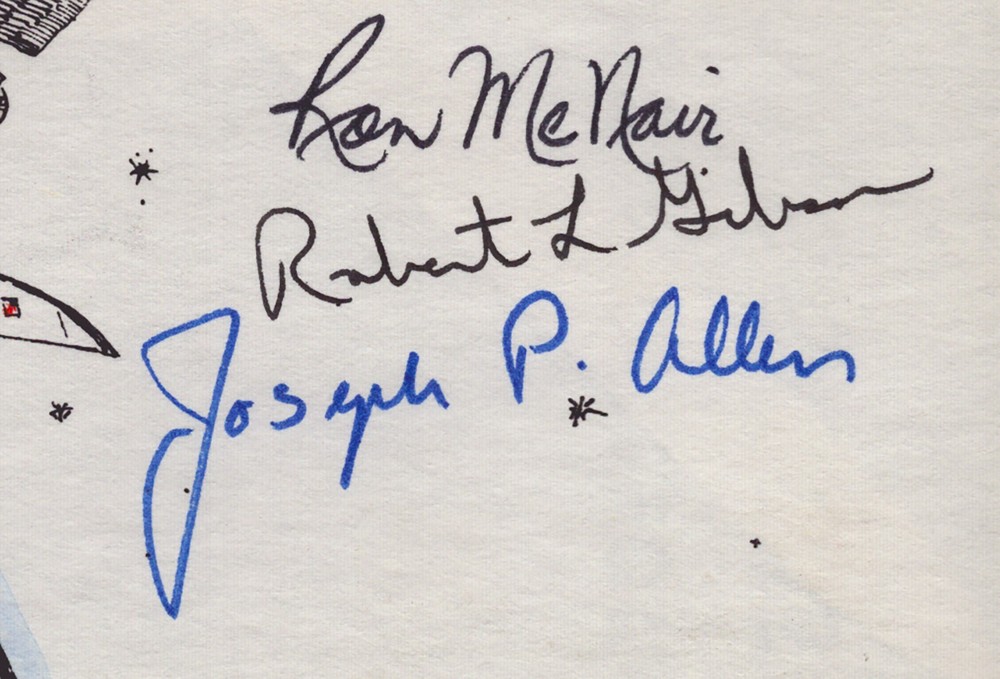 Ron McNair
Robert L Gibson
Joseph P. Allen